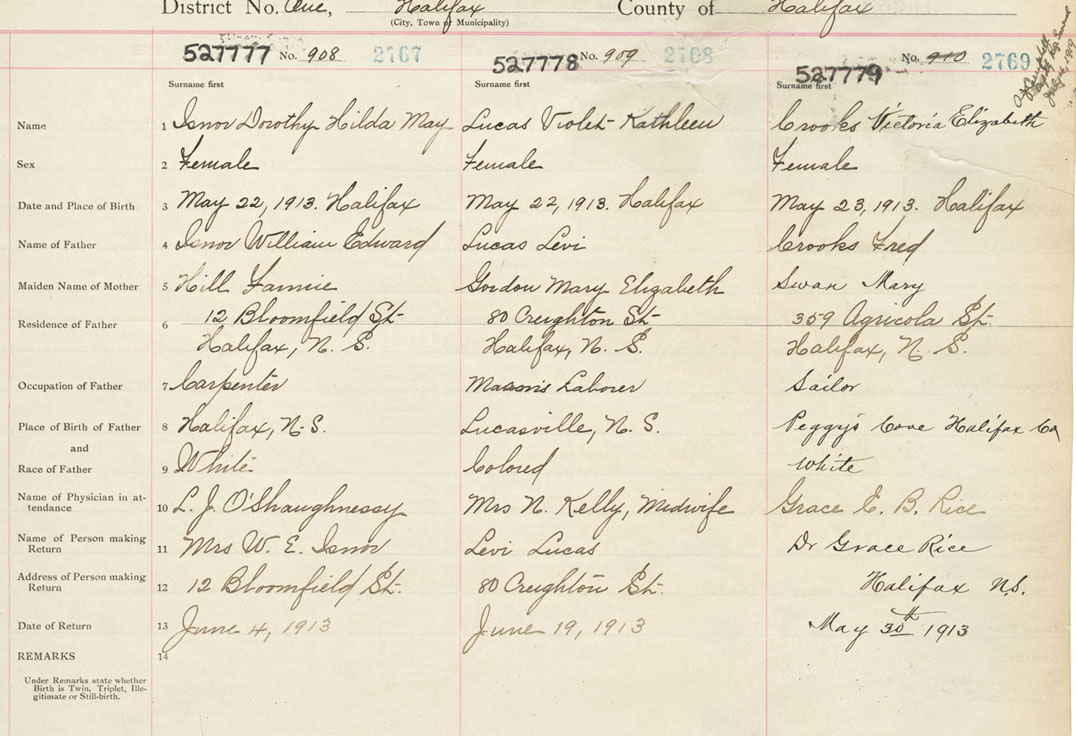 District No. One, Halifax County of Halifax
(City, Town or Municipality)
527777 No. 908 2767 527778 No. 909 2768 527779 No. 910 2769
Surname first Surname first Surname first
Name 1 Isnor Dorothy Hilda May Lucas Violet Kathleen Crooks Victoria Elizabeth
Sex 2 Female Female Female
Date and Place of Birth 3 May 22, 1913. Halifax May 22, 1913. Halifax May 23, 1913. Halifax
Name of Father 4 Isnor William Edward Lucas Levi Crooks Fred
Maiden Name of Mother 5 Hill Fannie Gordon Mary Elizabeth Swan Mary
Residence of Father 6 12 Bloomfield St. 80 Creighton St. 359 Agricola St.
Halifax, N. S. Halifax, N. S. Halifax, N. S.
Occupation of Father 7 Carpenter Mason's Laborer Sailor
Place of Birth of Father 8 Halifax, N. S. Lucasville, N. S. Peggy's Cove Halifax Co
and
Race of Father 9 White Colored White
Name of Physician in at-
tendance 10 L. J. O'Shaughnessy Mrs N. Kelly, Midwife Grace E. B. Rice
Name of Person making
Return 11 Mrs W. E. Isnor Levi Lucas Dr Grace Rice
Address of Person making
Return 12 12 Bloomfield St. 80 Creighton St. Halifax N.S.
Date of Return 13 June 4, 1913 June 19, 1913 May 30th 1913
REMARKS 14
Under Remarks state whether
Birth is Twin, Triplet, Ille-
gitimate or Still-birth.